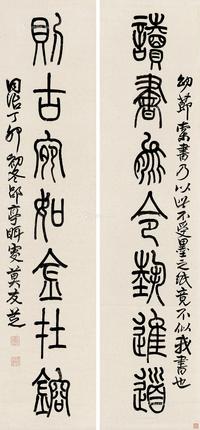 幼節索書乃以此不受墨之紙竟不似我書也
讀書能令藝進道
則古宛如金在鎔
同治丁卯初冬郘亭眲叟莫友芝